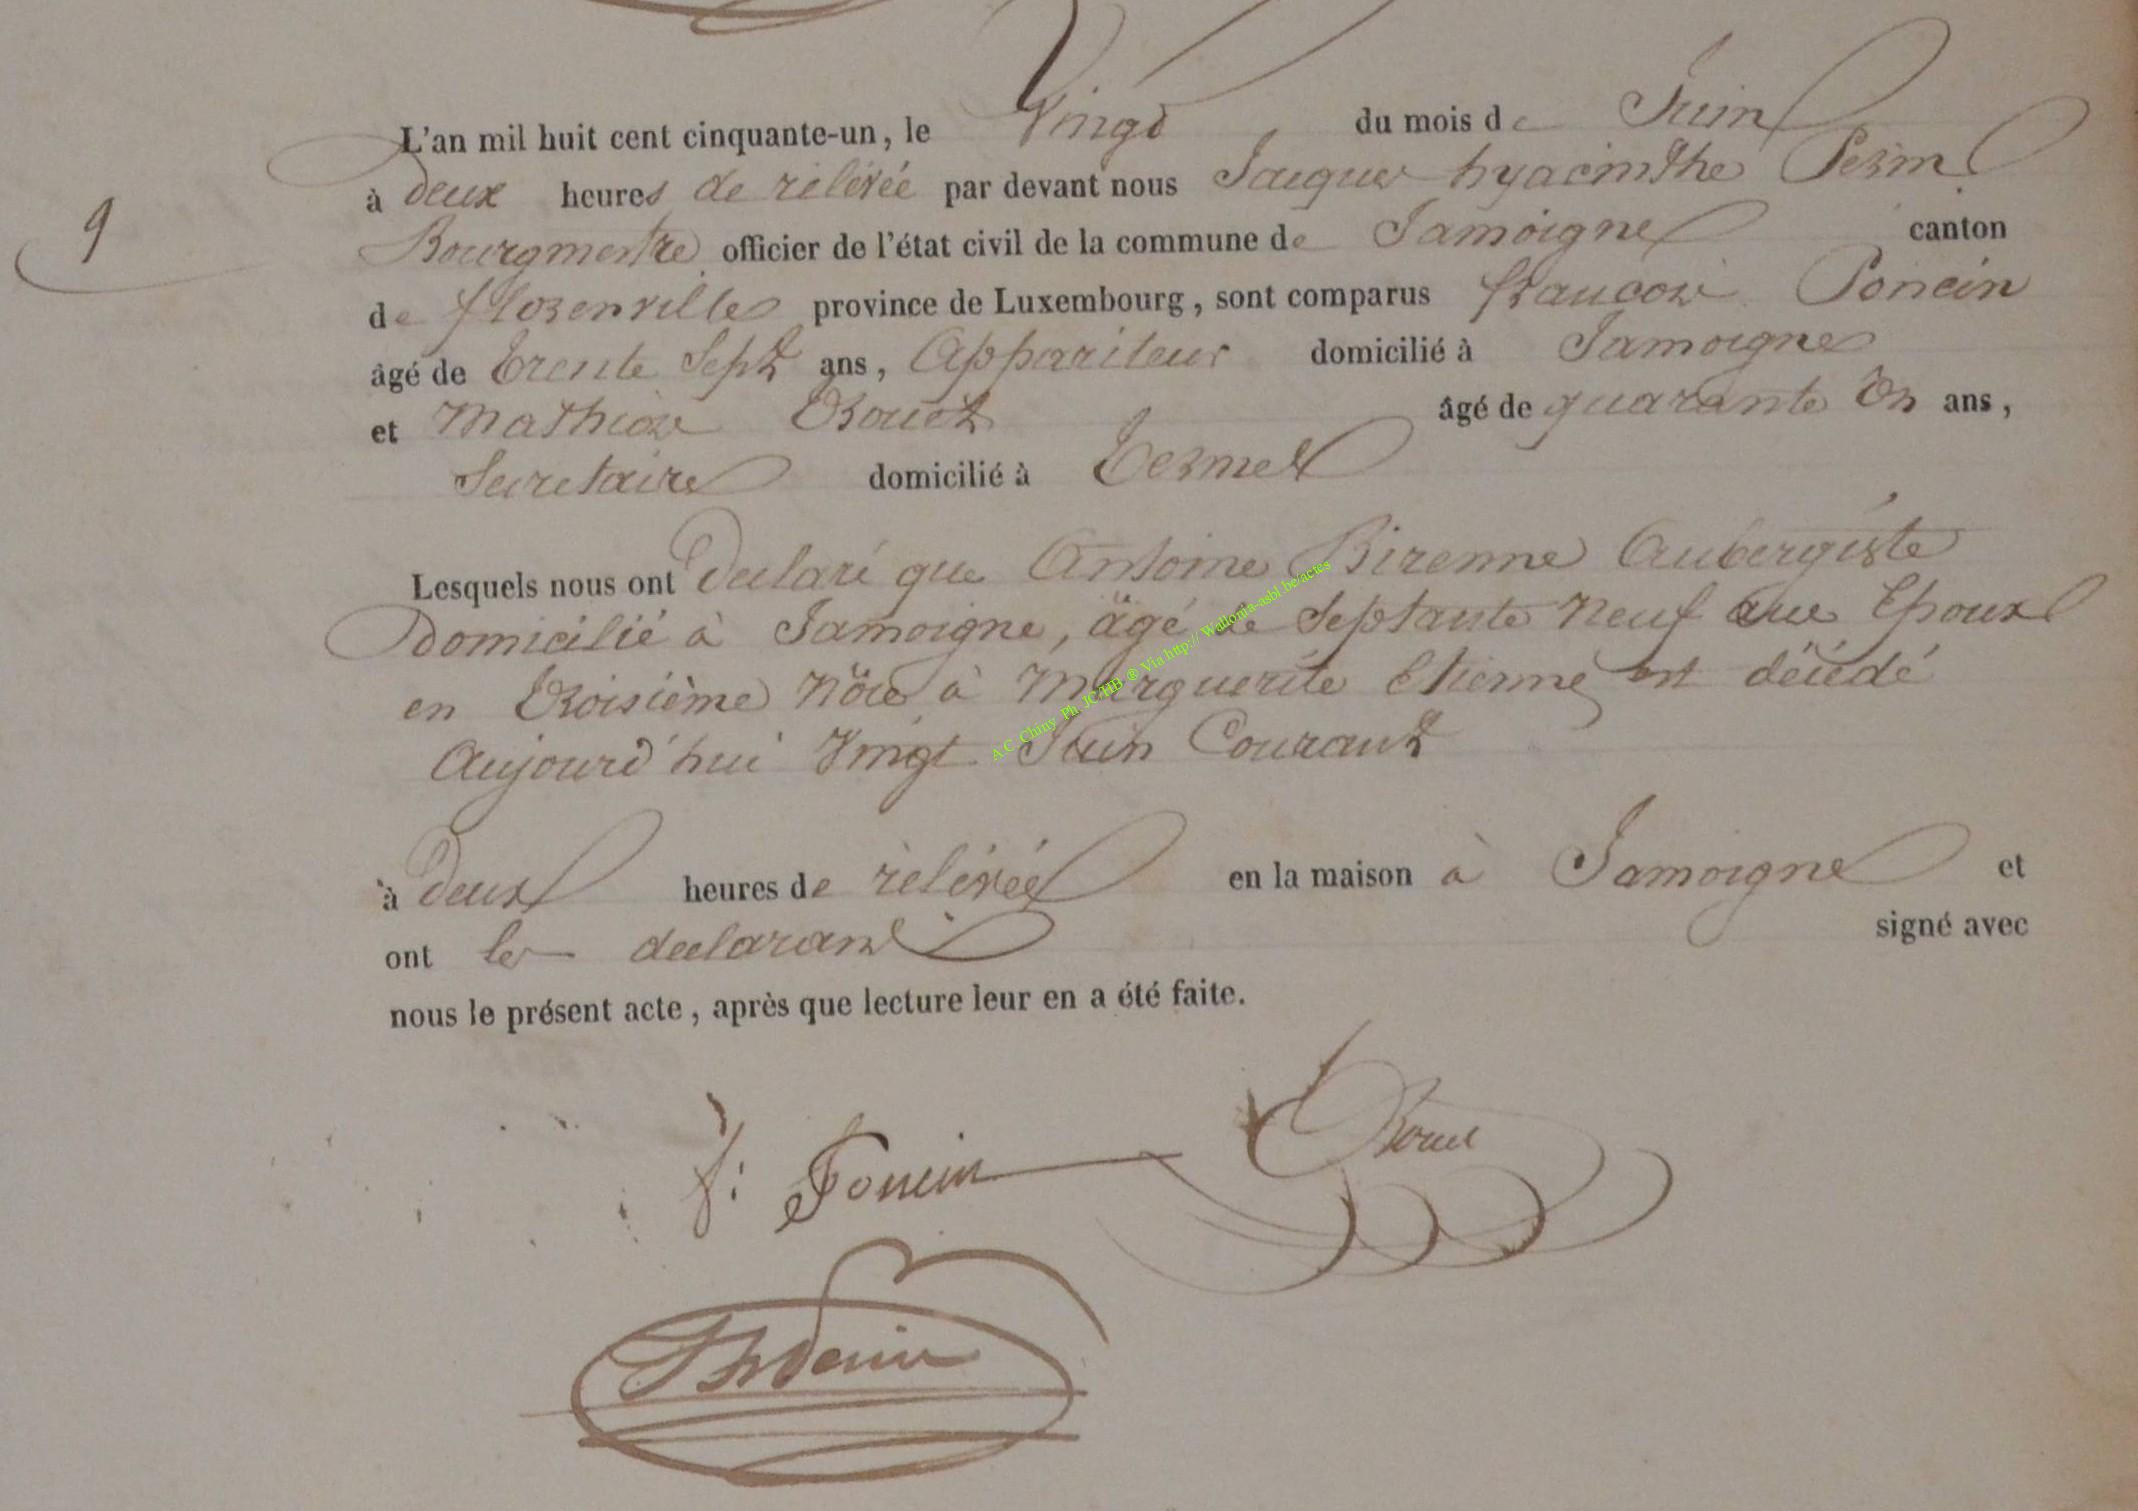 L'an mil huit cent cinquante-un, le Vingt du mois de Juin
à deux heures de relévée par devant nous Jacques hyacinthe
9
Bourgmestre officier de l'état civil de la commune de Jamoigne canton
de florenville province de Luxembourg, sont comparus francois Poncin
âgé de trente Sept ans, Appariteur domicilié à Jamoigne
et Mathieu Brouet âgé de quarante ans,
Secretaire domicilié à Termes
Lesquels nous ont declaré que Antoine Birenne Aubergiste
Domicilié à Jamoigne, âgé de Septante Neuf ans Epoux
en troisième Nôce à Marguerite Etienne est décédé
Aujourd'hui Vingt Juin Courant
A.C. Chiny Ph. JC/HB ® Via http:// Wallonia-asbl.be/actes
à deux heures de rélévée en la maison à Jamoigne et
ont les declarans signé avec
nous le présent acte, après que lecture leur en a été faite.
f: Poncin